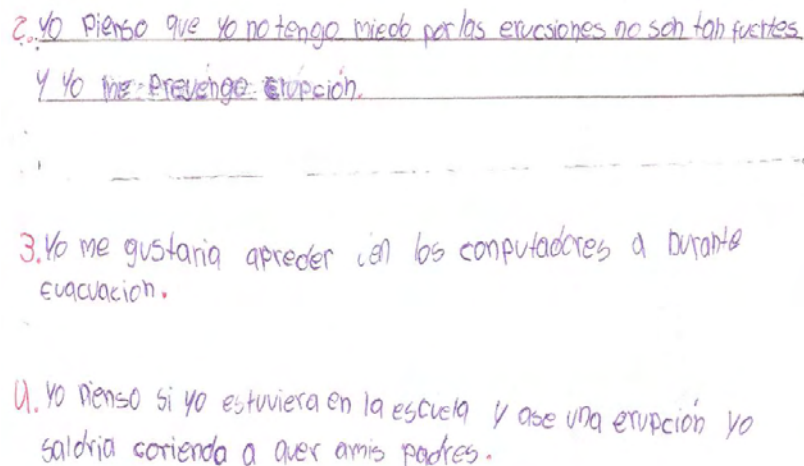 2. Yo Pienso que yo no tengo miedo por las erucsiones no son tan fuertes
y yo me prevengo erupción.
3. Yo me gustaria apreder en los conputadores a Durante
Evacuacion.
4. Yo Pienso si yo estuviera en la escuela y ase una erupción yo
saldria corienda a aver amis padres.